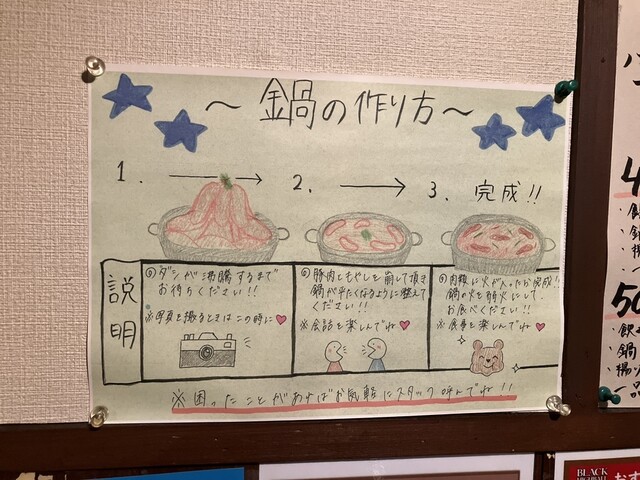 ～ 鍋の作り方 ～
1. → 2. → 3. 完成!!
説明
◎ダシが沸騰するまで
お待ちください!!
※写真を撮るときはこの時に♥
◎豚肉ともやしを崩して頂き
鍋が平たくなるように整えて
ください!!
※会話を楽しんでね♥
◎肉類に火が入ったら完成!
鍋の火を弱火にして、
お食べください!!
※食事を楽しんでね♥
※困ったことがあればお気軽にスタッフ呼んでね!!
50
BLACK
おす